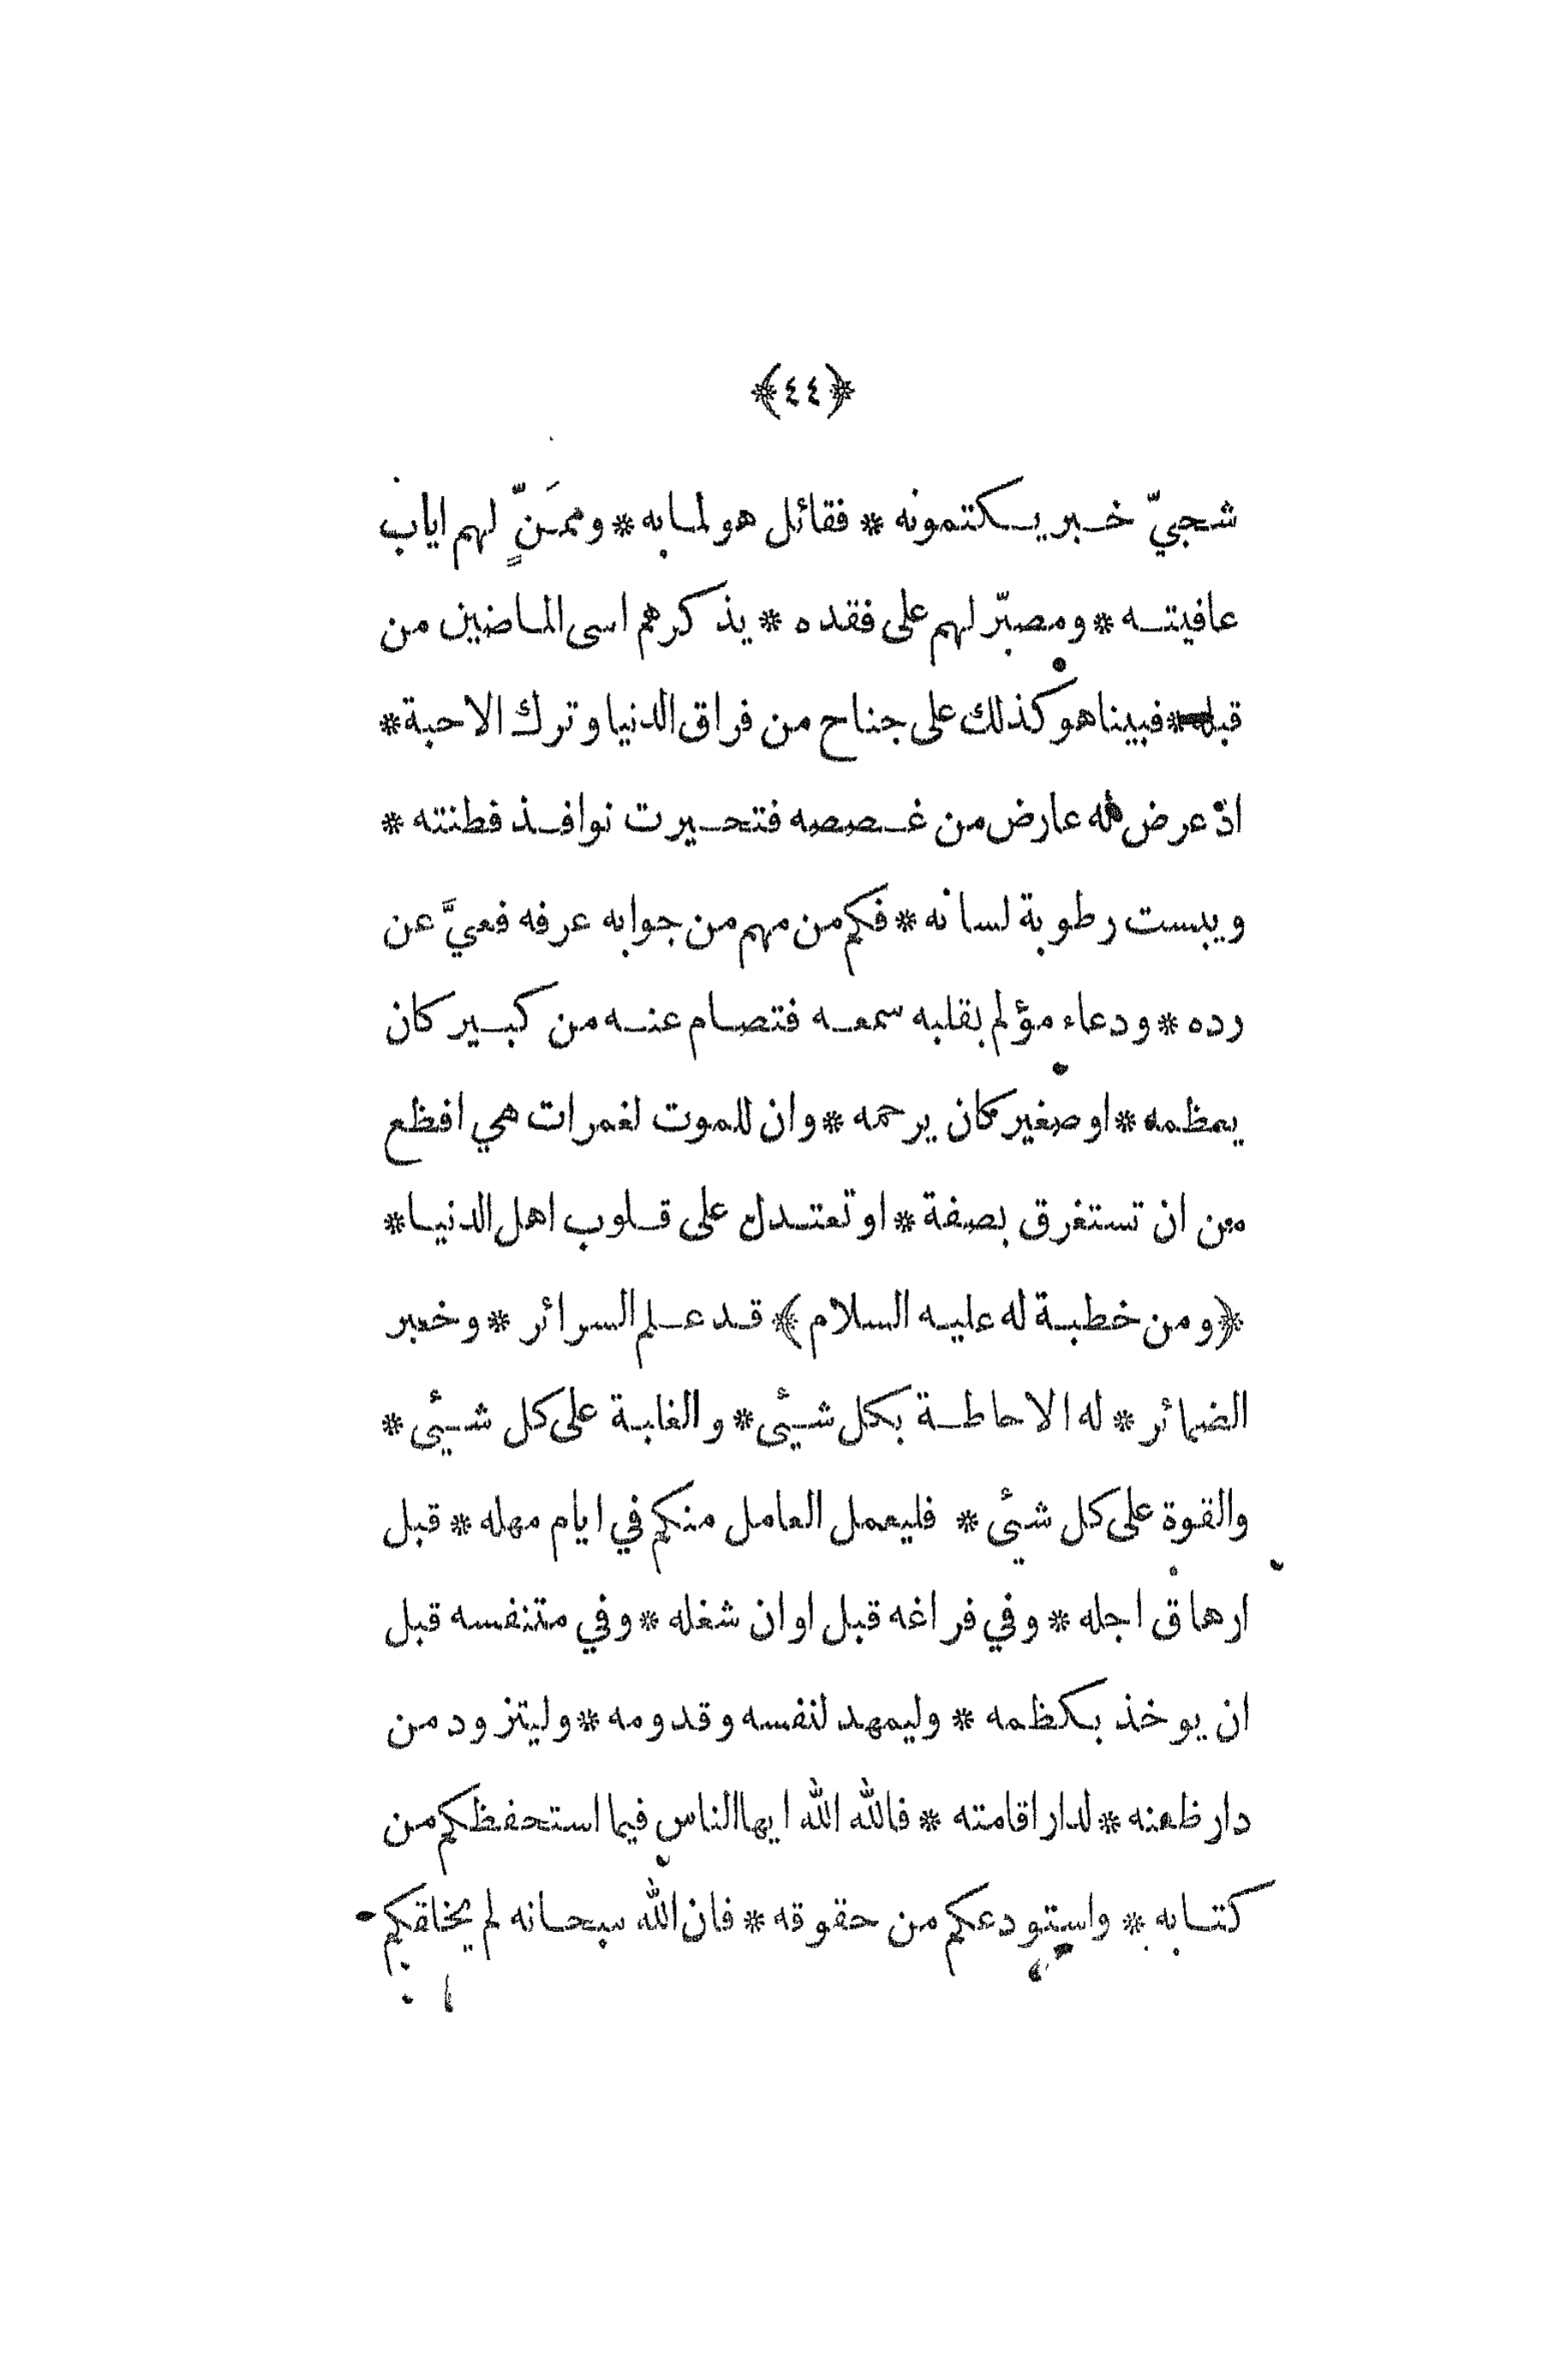 ﴿٤٤﴾
شجيّ خبر يكتمونه * فقائل هو لما به * وممَنٍّ لهم اياب
عافيته * ومصبّر لهم على فقده * يذكرهم اسى الماضين من
قبله * فبينا هو كذلك على جناح من فراق الدنيا وترك الاحبة *
اذ عرض له عارض من غصصه فتحيرت نوافذ فطنته *
ويبست رطوبة لسانه * فكم من مهم من جوابه عرفه فعيَّ عن
رده * ودعاء مؤلم بقلبه سمعه فتصام عنه من كبير كان
يعظمه * او صغير كان يرحمه * وان للموت لغمرات هي افظع
من ان تستغرق بصفة * او تعتدل على قلوب اهل الدنيا *
﴿ ومن خطبة له عليه السلام ﴾ قد علم السرائر * وخبر
الضمائر * له الاحاطة بكل شيئ * والغلبة على كل شيئ *
والقوة على كل شيئ * فليعمل العامل منكم في ايام مهله * قبل
ارهاق اجله * وفي فراغه قبل اوان شغله * وفي متنفسه قبل
ان يوخذ بكظمه * وليمهد لنفسه وقدومه * وليتزود من
دار ظعنه * لدار اقامته * فالله الله ايها الناس فيما استحفظكم من
كتابه * واستودعكم من حقوقه * فان الله سبحانه لم يخلقكم